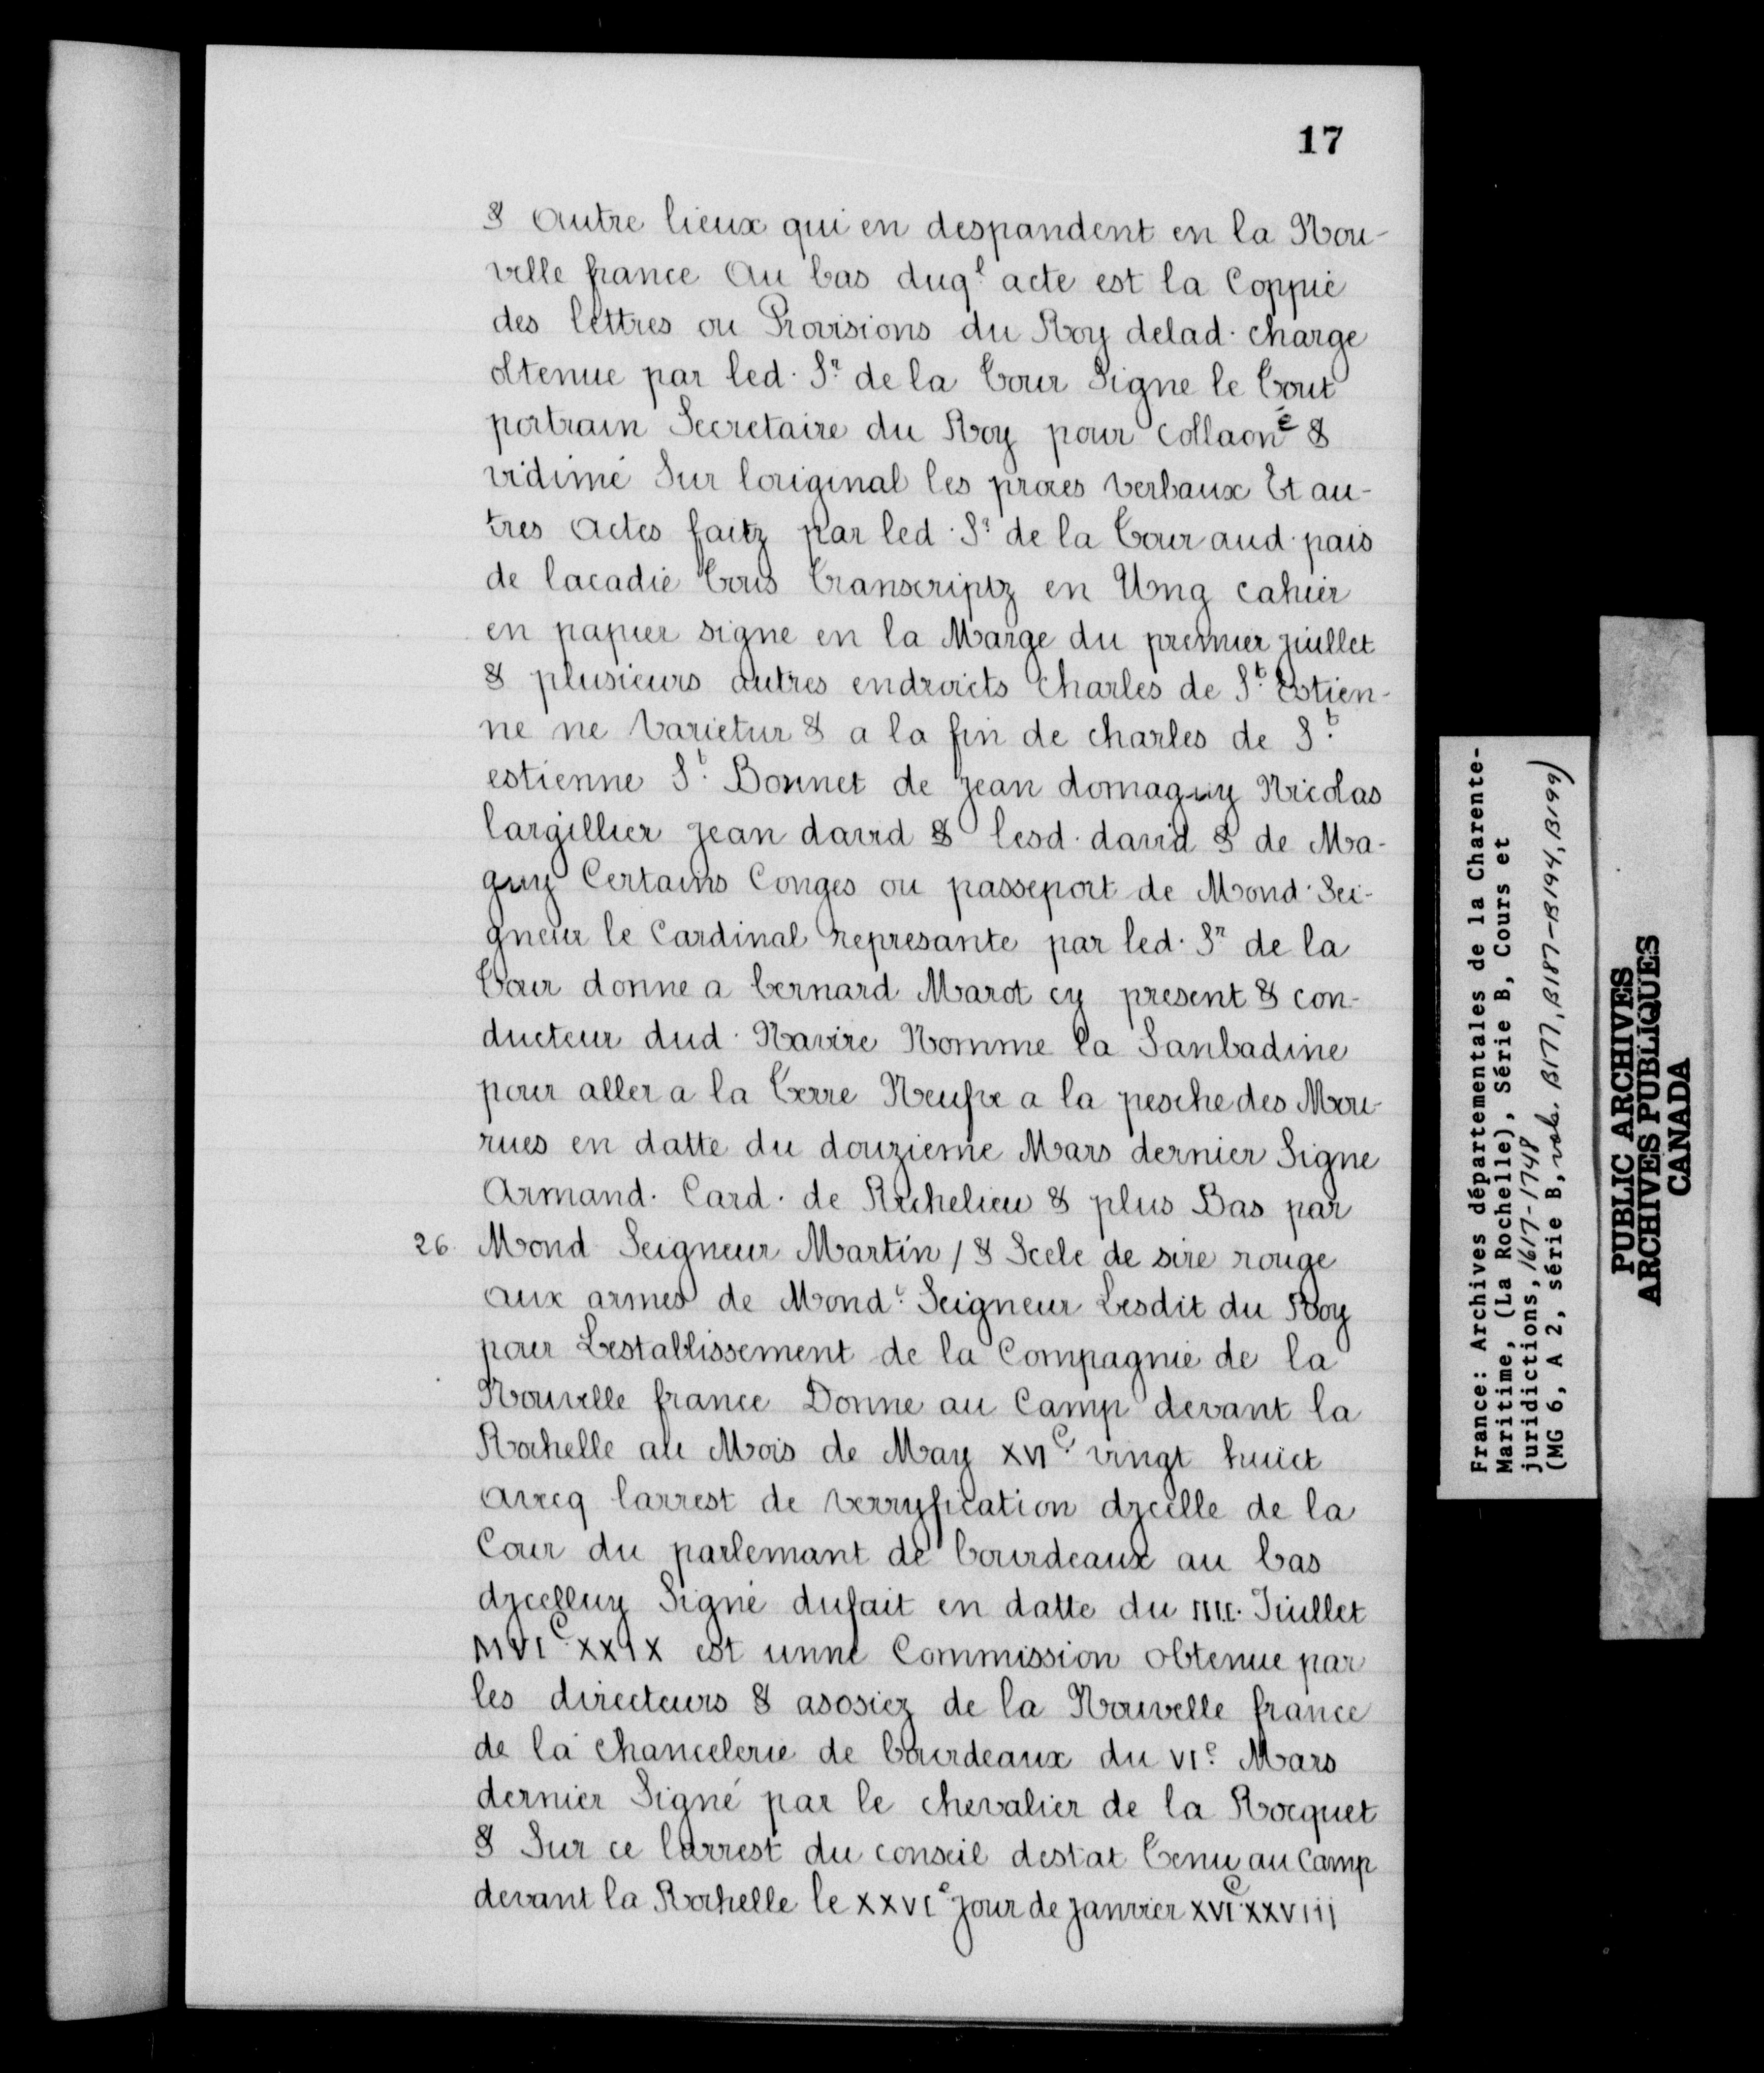 17
& Autre lieux qui en despandent en la Nou-
velle france Au bas duq.l acte est la Coppie
des lettres ou Provisions du Roy delad. charge
obtenue par led. Sr. de la Tour Signe le Tout
portrain Secretaire du Roy pour collaoné &
vidimé Sur loriginal les proces verbaux Et au-
tres Actes faitz par led. Sr. de la Tour aud. pais
de lacadie Tous Transcriptz en Ung cahier
en papier signe en la Marge du premier juillet
& plusieurs autres endroicts Charles de St. Estien-
ne ne Varietur & a la fin de charles de St.
estienne St. Bonnet de jean domaguy Nicolas
largillier jean david & lesd. david & de Ma-
guy Certains Conges ou passeport de Mond. Sei-
gneur le Cardinal represante par led. Sr. de la
Tour donne a bernard Marot cy present & con-
ducteur dud. Navire Nomme la Sanbadine
pour aller a la Terre Neufve a la pesche des Mou-
rues en datte du douzieme Mars dernier Signe
Armand. Card. de Richelieu & plus Bas par
26. Mond Seigneur Martin / & Scele de sire rouge
aux armes de Mondt. Seigneur Lesdit du Roy
pour Lestablissement de la Compagnie de la
Nouvelle france Donne au Camp devant la
Rochelle au Mois de May XVIC. vingt huict
avecq larrest de verryfication dycelle de la
Cour du parlemant de bourdeaux au bas
dycelluy Signé dufait en datte du IIII. Juillet
MVIC. XXIX est unne Commission obtenue par
les directeurs & asosiez de la Nouvelle france
de la Chancelerie de bourdeaux du VIe. Mars
dernier Signé par le chevalier de la Rocquet
& Sur ce larrest du conseil destat Tenu au Camp
devant la Rochelle le XXVIe jour de janvier XVIC XXVIIJ
France: Archives départementales de la Charente-
Maritime, (La Rochelle), Série B, Cours et
juridictions, 1617-1748
(MG 6, A 2, série B, vols. B177, B187-B194, B199)
PUBLIC ARCHIVES
ARCHIVES PUBLIQUES
CANADA